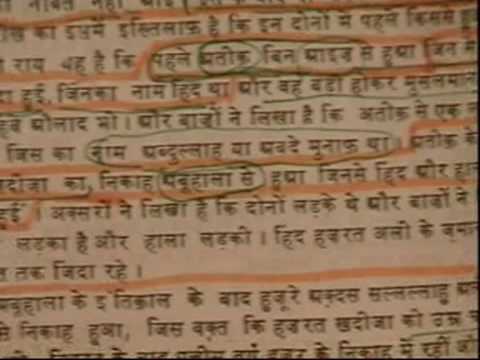 नौबत नहीं आई।
का इसमें इख़्तिलाफ़ है कि इन दोनों में पहले किससे
राय यह है कि पहले अतीक़ बिन आइज़ से हुआ जिन से
हुई, जिनका नाम हिंद था और वह बड़ी होकर मुसलमान
औलाद भी। और बाज़ों ने लिखा है कि अतीक़ से एक
जिस का नाम अब्दुल्लाह या अब्दे मुनाफ़ था। अतीक़ के
का, निकाह अबूहाला से हुआ जिनसे हिंद और
हुई। अक्सरों ने लिखा है कि दोनों लड़के थे और बाज़ों ने
लड़का है और हाला लड़की। हिंद हज़रत अली के ज़माने
तक ज़िंदा रहे।
अबूहाला के इंतिक़ाल के बाद हुज़ूरे अक़्दस सल्लल्लाहु
से निकाह हुआ, जिस वक़्त कि हज़रत ख़दीजा की उम्र
के बाद के निकाह में रहीं और